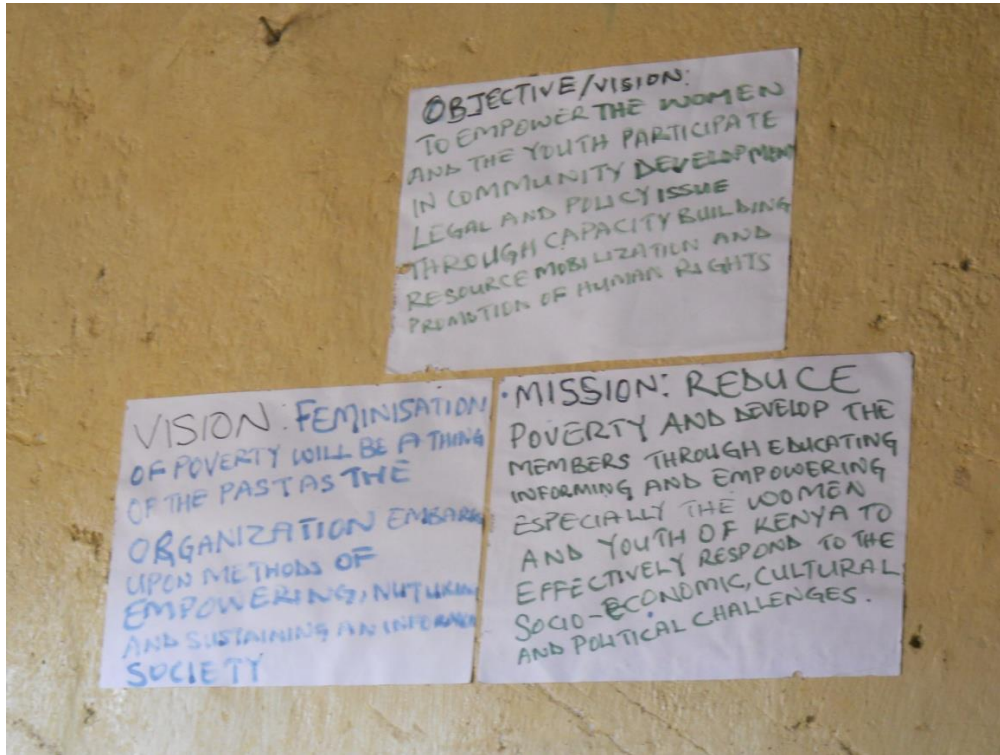 OBJECTIVE/VISION:
TO EMPOWER THE WOMEN
AND THE YOUTH PARTICIPATE
IN COMMUNITY DEVELOPMENT
LEGAL AND POLICY ISSUE
THROUGH CAPACITY BUILDING
RESOURCE MOBILIZATION AND
PROMOTION OF HUMAN RIGHTS
VISION: FEMINISATION
OF POVERTY WILL BE A THING
OF THE PAST AS THE
ORGANIZATION EMBARK
UPON METHODS OF
EMPOWERING, NUTURING
AND SUSTAINING AN
SOCIETY
MISSION: REDUCE
POVERTY AND DEVELOP THE
MEMBERS THROUGH EDUCATING
INFORMING AND EMPOWERING
ESPECIALLY THE WOMEN
AND YOUTH OF KENYA TO
EFFECTIVELY RESPOND TO THE
SOCIO-ECONOMIC, CULTURAL
AND POLITICAL CHALLENGES.